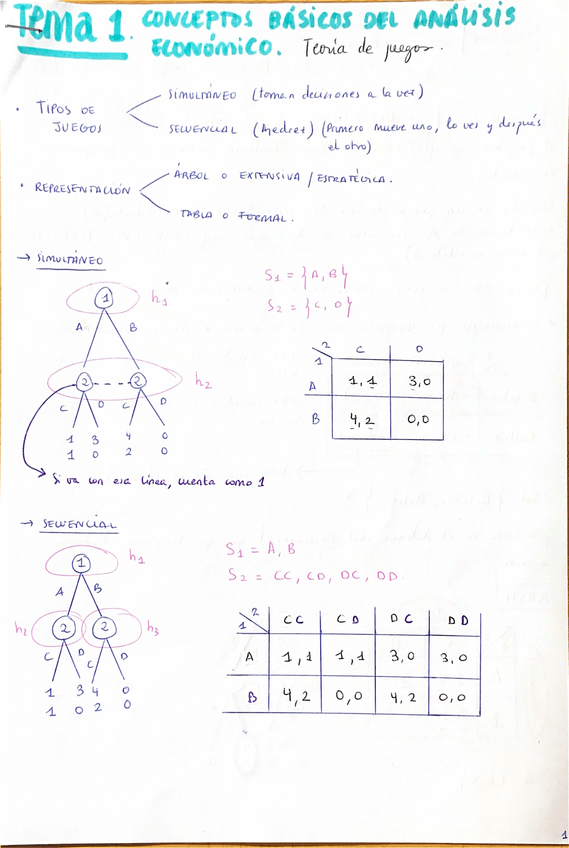 Tema 1. CONCEPTOS BÁSICOS DEL ANÁLISIS
ECONÓMICO. Teoría de juegos.
· TIPOS DE
JUEGOS
SIMULTÁNEO (toman decisiones a la vez)
SECUENCIAL (Ajedrez) (Primero mueve uno, lo ves y después
el otro)
· REPRESENTACIÓN
ÁRBOL O EXTENSIVA / ESTRATÉGICA.
TABLA O FORMAL.
→ SIMULTÁNEO
1 h1
A B
2 --- 2 h2
C D C D
1 3 4 0
1 0 2 0
Si va con esa línea, cuenta como 1
S1 = {A, B}
S2 = {C, D}
2 C D
1
A 1,1 3,0
B 4,2 0,0
→ SECUENCIAL
1 h1
A B
h2 2 2 h3
C D C D
1 3 4 0
1 0 2 0
S1 = A, B
S2 = CC, CD, DC, DD.
1 2 CC CD DC DD
A 1,1 1,1 3,0 3,0
B 4,2 0,0 4,2 0,0
1